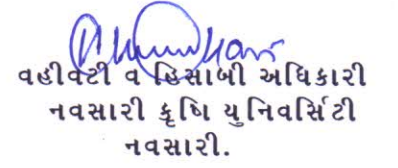 વહીવટી વ હિસાબી અધિકારી
નવસારી કૃષિ યુનિવર્સિટી
નવસારી.